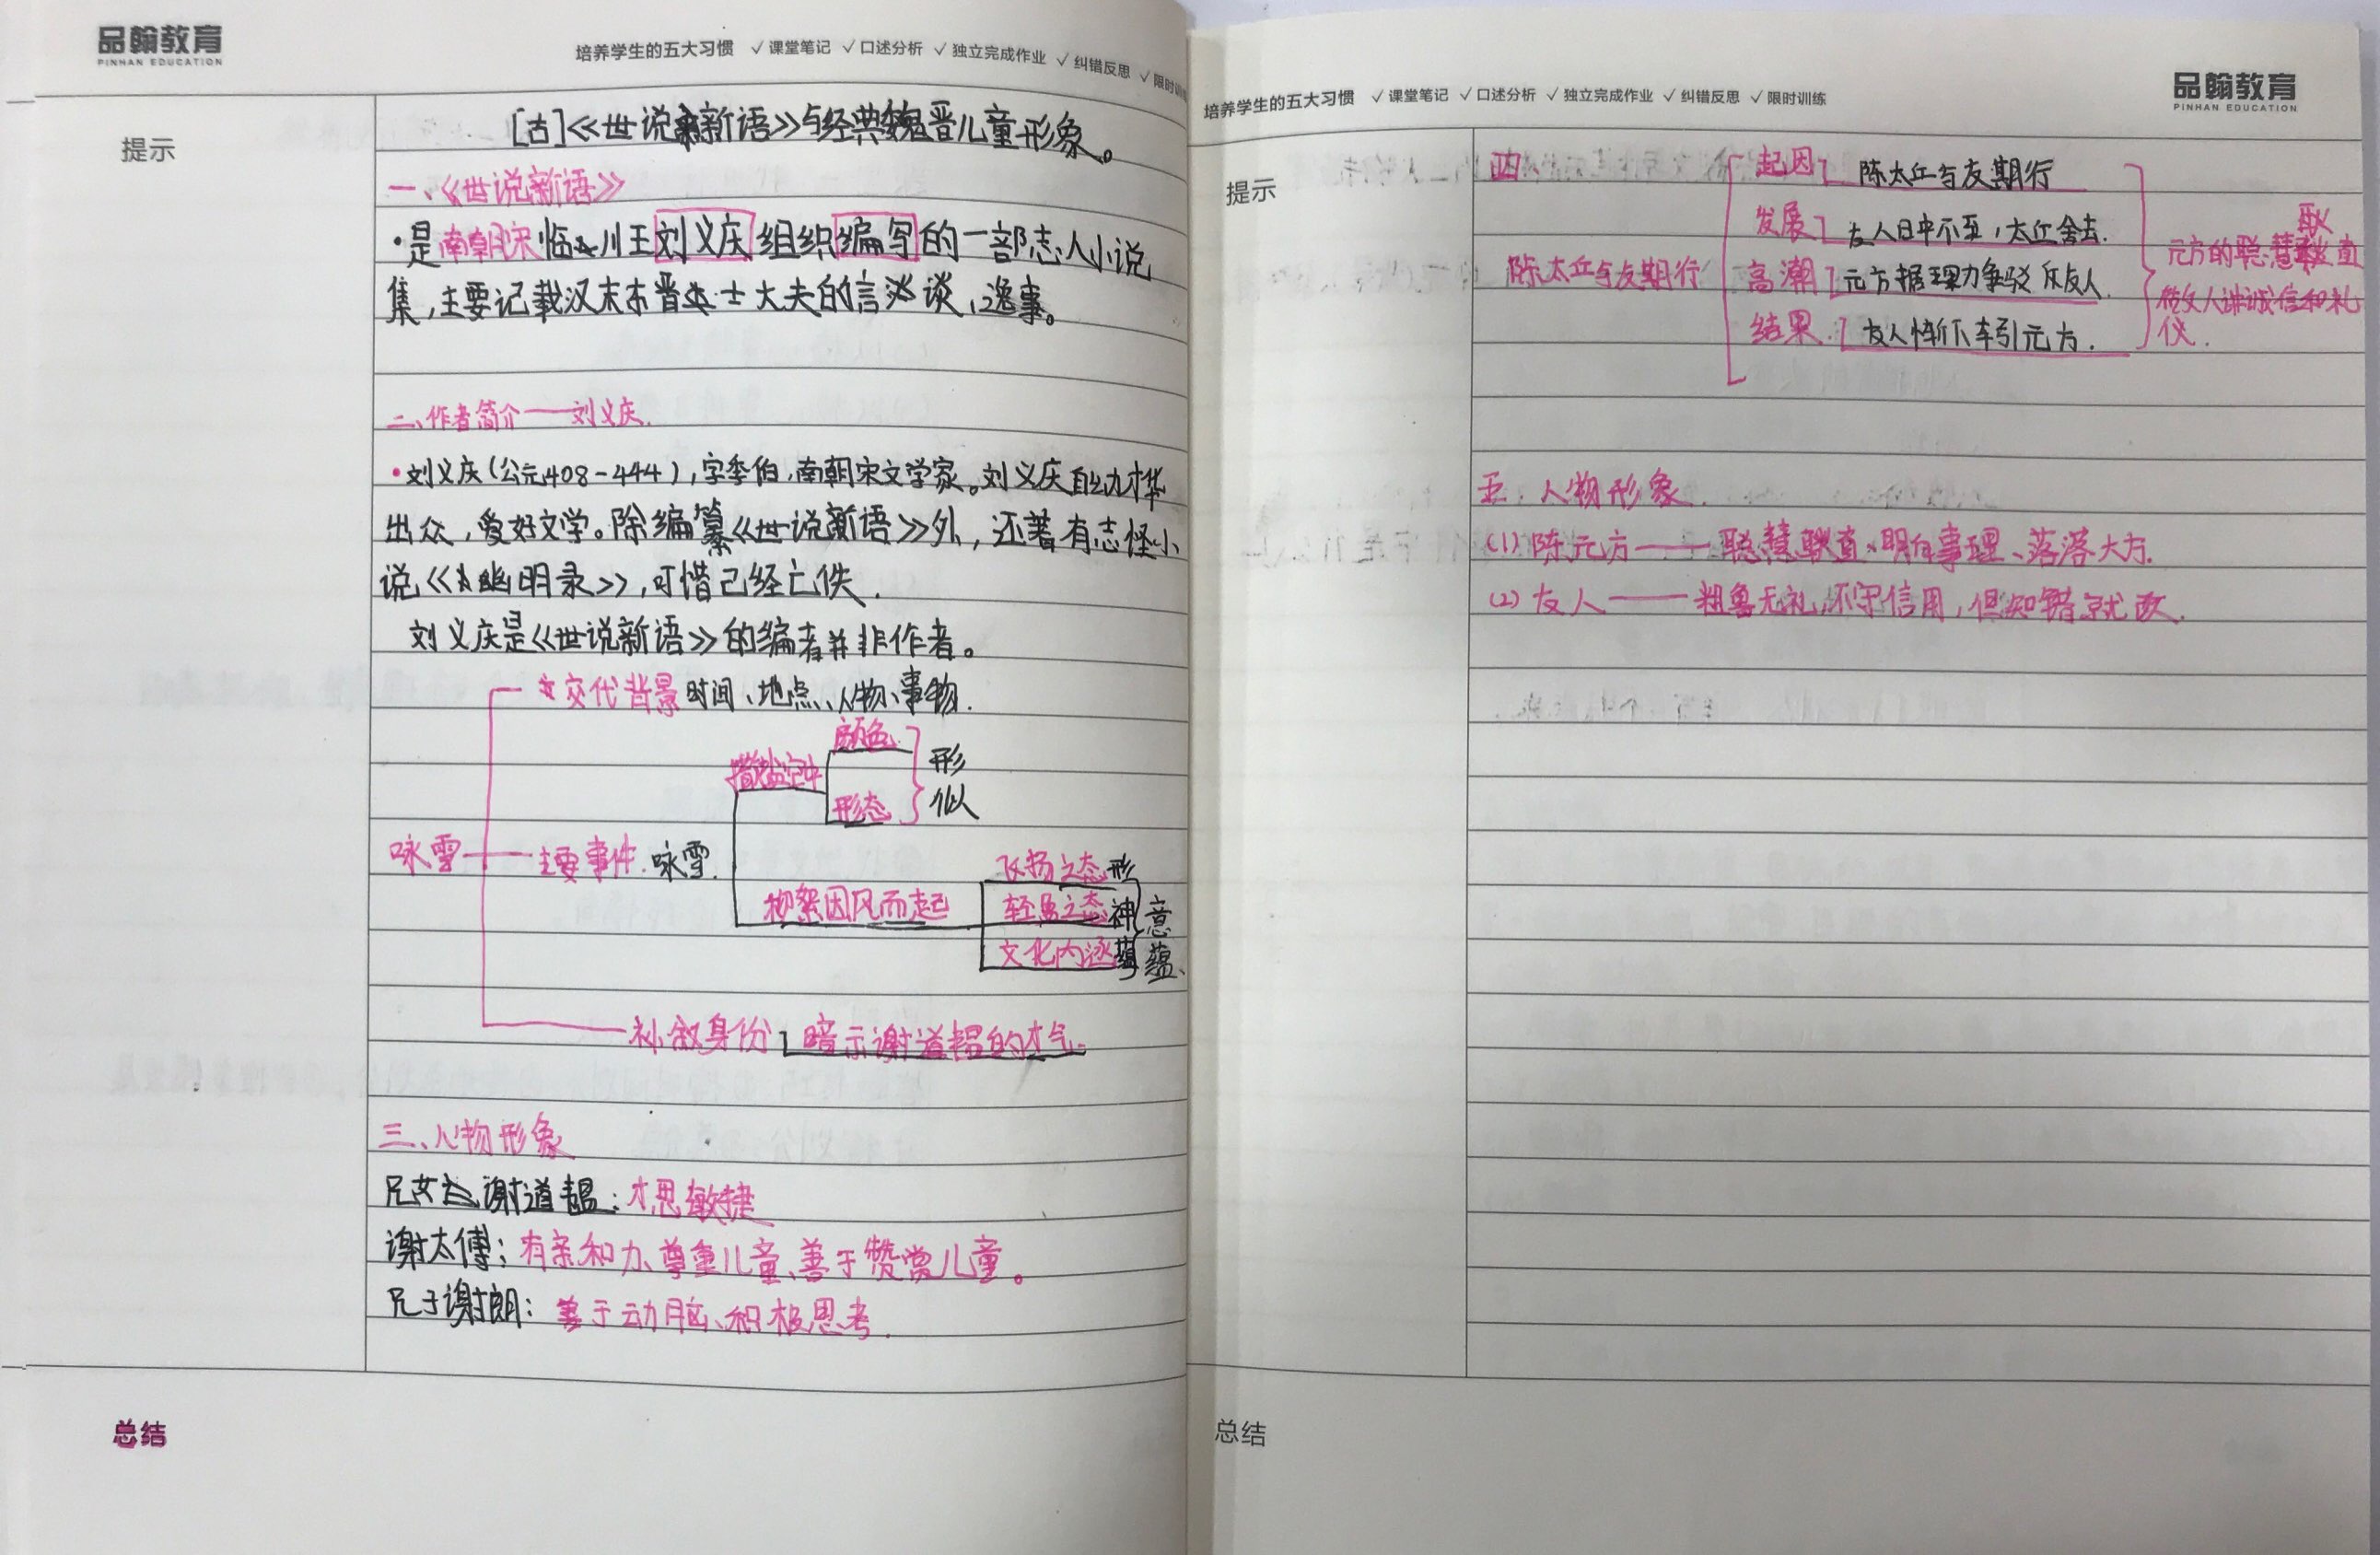 品翰教育
PINHAN EDUCATION
培养学生的五大习惯 √课堂笔记 √口述分析 √独立完成作业 √纠错反思 √限时训练
提示
[古]《世说新语》与经典魏晋儿童形象。
一、《世说新语》
·是南朝宋临川王刘义庆组织编写的一部志人小说
集,主要记载汉末东晋士大夫的言谈,逸事。
二、作者简介——刘义庆.
·刘义庆(公元408-444),字季伯,南朝宋文学家。刘义庆自幼才华
出众,爱好文学。除编纂《世说新语》外,还著有志怪小
说《幽明录》,可惜已经亡佚.
刘义庆是《世说新语》的编者并非作者。
交代背景 时间、地点、人物、事物.
颜色
撒盐空中
形
似
形态
咏雪 主要事件.咏雪.
飞扬之态 形
柳絮因风而起
轻易之态 神
意
文化内涵
蕴
补叙身份 暗示谢道韫的才气.
三、人物形象
兄女 谢道韫:才思敏捷
谢太傅:有亲和力、尊重儿童、善于赞赏儿童。
兄子谢朗:善于动脑、积极思考.
总结
培养学生的五大习惯 √课堂笔记 √口述分析 √独立完成作业 √纠错反思 √限时训练
品翰教育
PINHAN EDUCATION
提示
四、
陈太丘与友期行
起因 陈太丘与友期行
发展 友人日中不至,太丘舍去.
高潮 元方据理力争驳斥友人.
结果. 友人惭下车引元方.
耿
元方的聪慧 直
做文人讲诚信和礼
仪.
五、人物形象.
(1) 陈元方——聪慧耿直、明白事理、落落大方.
(2) 友人——粗鲁无礼,不守信用,但知错就改.
总结